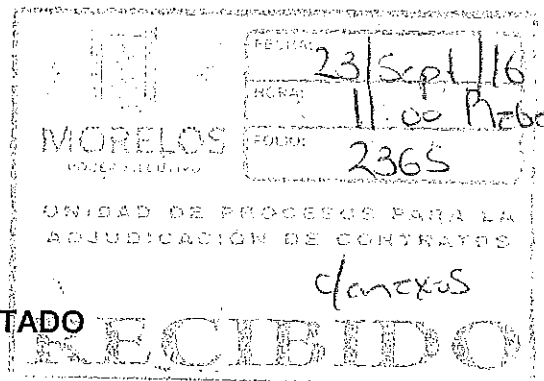 FECHA: 23/Sept/16
HORA: 11:00
FOLIO: 2365
MORELOS
PODER EJECUTIVO
UNIDAD DE PROCESOS PARA LA
ADJUDICACIÓN DE CONTRATOS
c/anexos
TADO
RECIBIDO